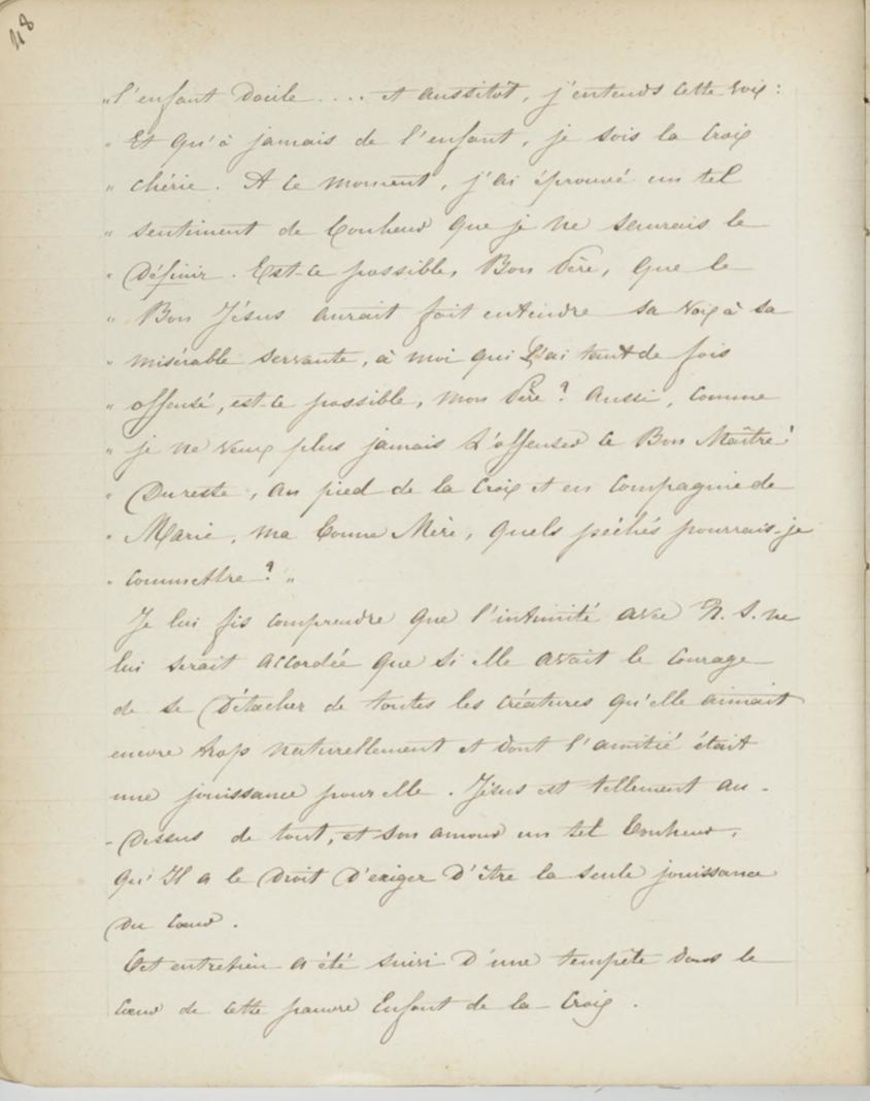 48
„ l'enfant docile .... et aussitôt, j'entends cette voix :
„ Et qu'à jamais de l'enfant, je sois la Croix
„ chérie. A ce moment, j'ai éprouvé un tel
„ sentiment de bonheur que je ne saurais le
„ définir. Est-ce possible, Bon Père, que le
„ Bon Jésus aurait fait entendre sa voix à sa
„ misérable servante, à moi qui L'ai tant de fois
„ offensé, est-ce possible, mon Père ? Aussi, comme
„ je ne veux plus jamais L'offenser ce Bon Maître !
„ Du reste, au pied de la Croix et en compagnie de
„ Marie, ma bonne Mère, quels péchés pourrais-je
„ commettre ? „
Je lui fis comprendre que l'intimité avec N. S. ne
lui serait accordée que si elle avait le courage
de se détacher de toutes les créatures qu'elle aimait
encore trop naturellement et dont l'amitié était
une jouissance pour elle. Jésus est tellement au-
-dessus de tout, et son amour un tel bonheur,
qu'Il a le droit d'exiger d'être la seule jouissance
du cœur.
Cet entretien a été suivi d'une tempête dans le
cœur de cette pauvre Enfant de la Croix.